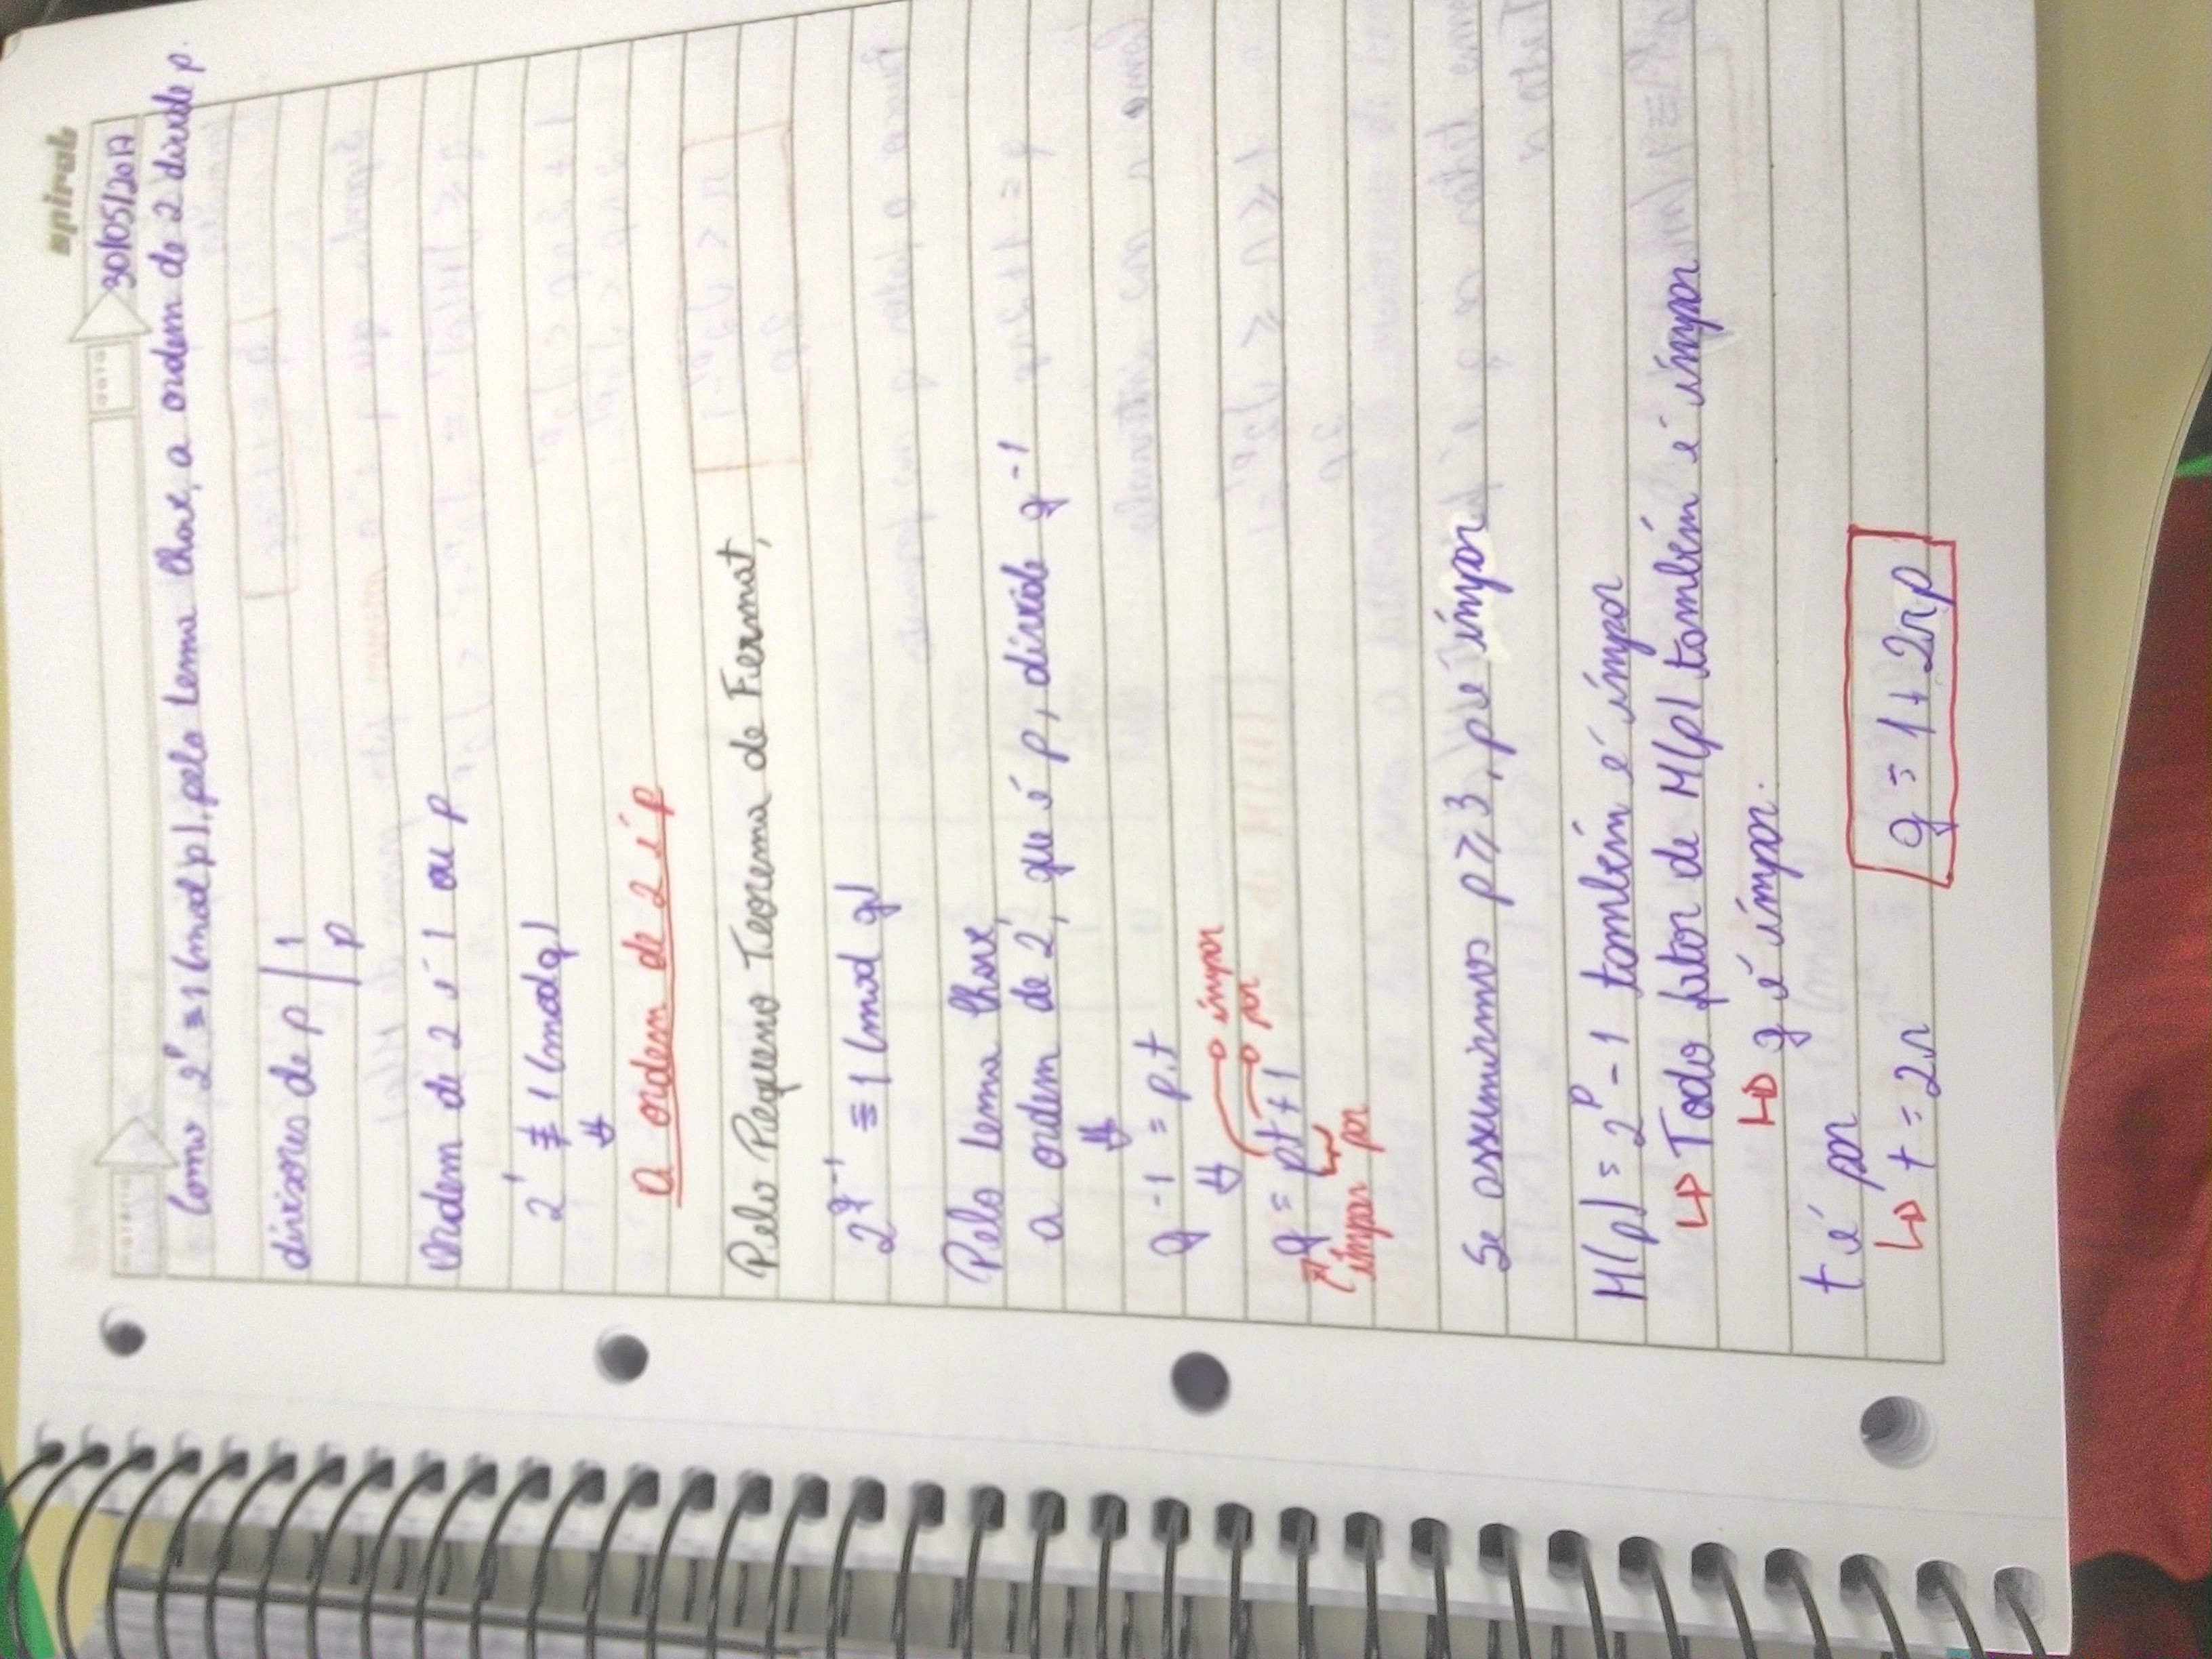 spiral
30/05/2017
Como 2^p ≡ 1 (mod p), pelo Lema Chave, a ordem de 2 divide p.
divisores de p | 1
p
Ordem de 2 é 1 ou p
2^1 ≢ 1 (mod q)
⇓
A ordem de 2 é p
Pelo Pequeno Teorema de Fermat,
2^q-1 ≡ 1 (mod q)
Pelo Lema Chave,
a ordem de 2, que é p, divide q-1
⇓
q-1 = p.t
⇓
ímpar
par
q = pt+1
ímpar par
Se assumirmos p ⩾ 3, p é ímpar
M(p) = 2^p - 1 também é ímpar
↳ Todo fator de M(p) também é ímpar
↳ q é ímpar.
t é par
↳ t = 2r q = 1 + 2rp